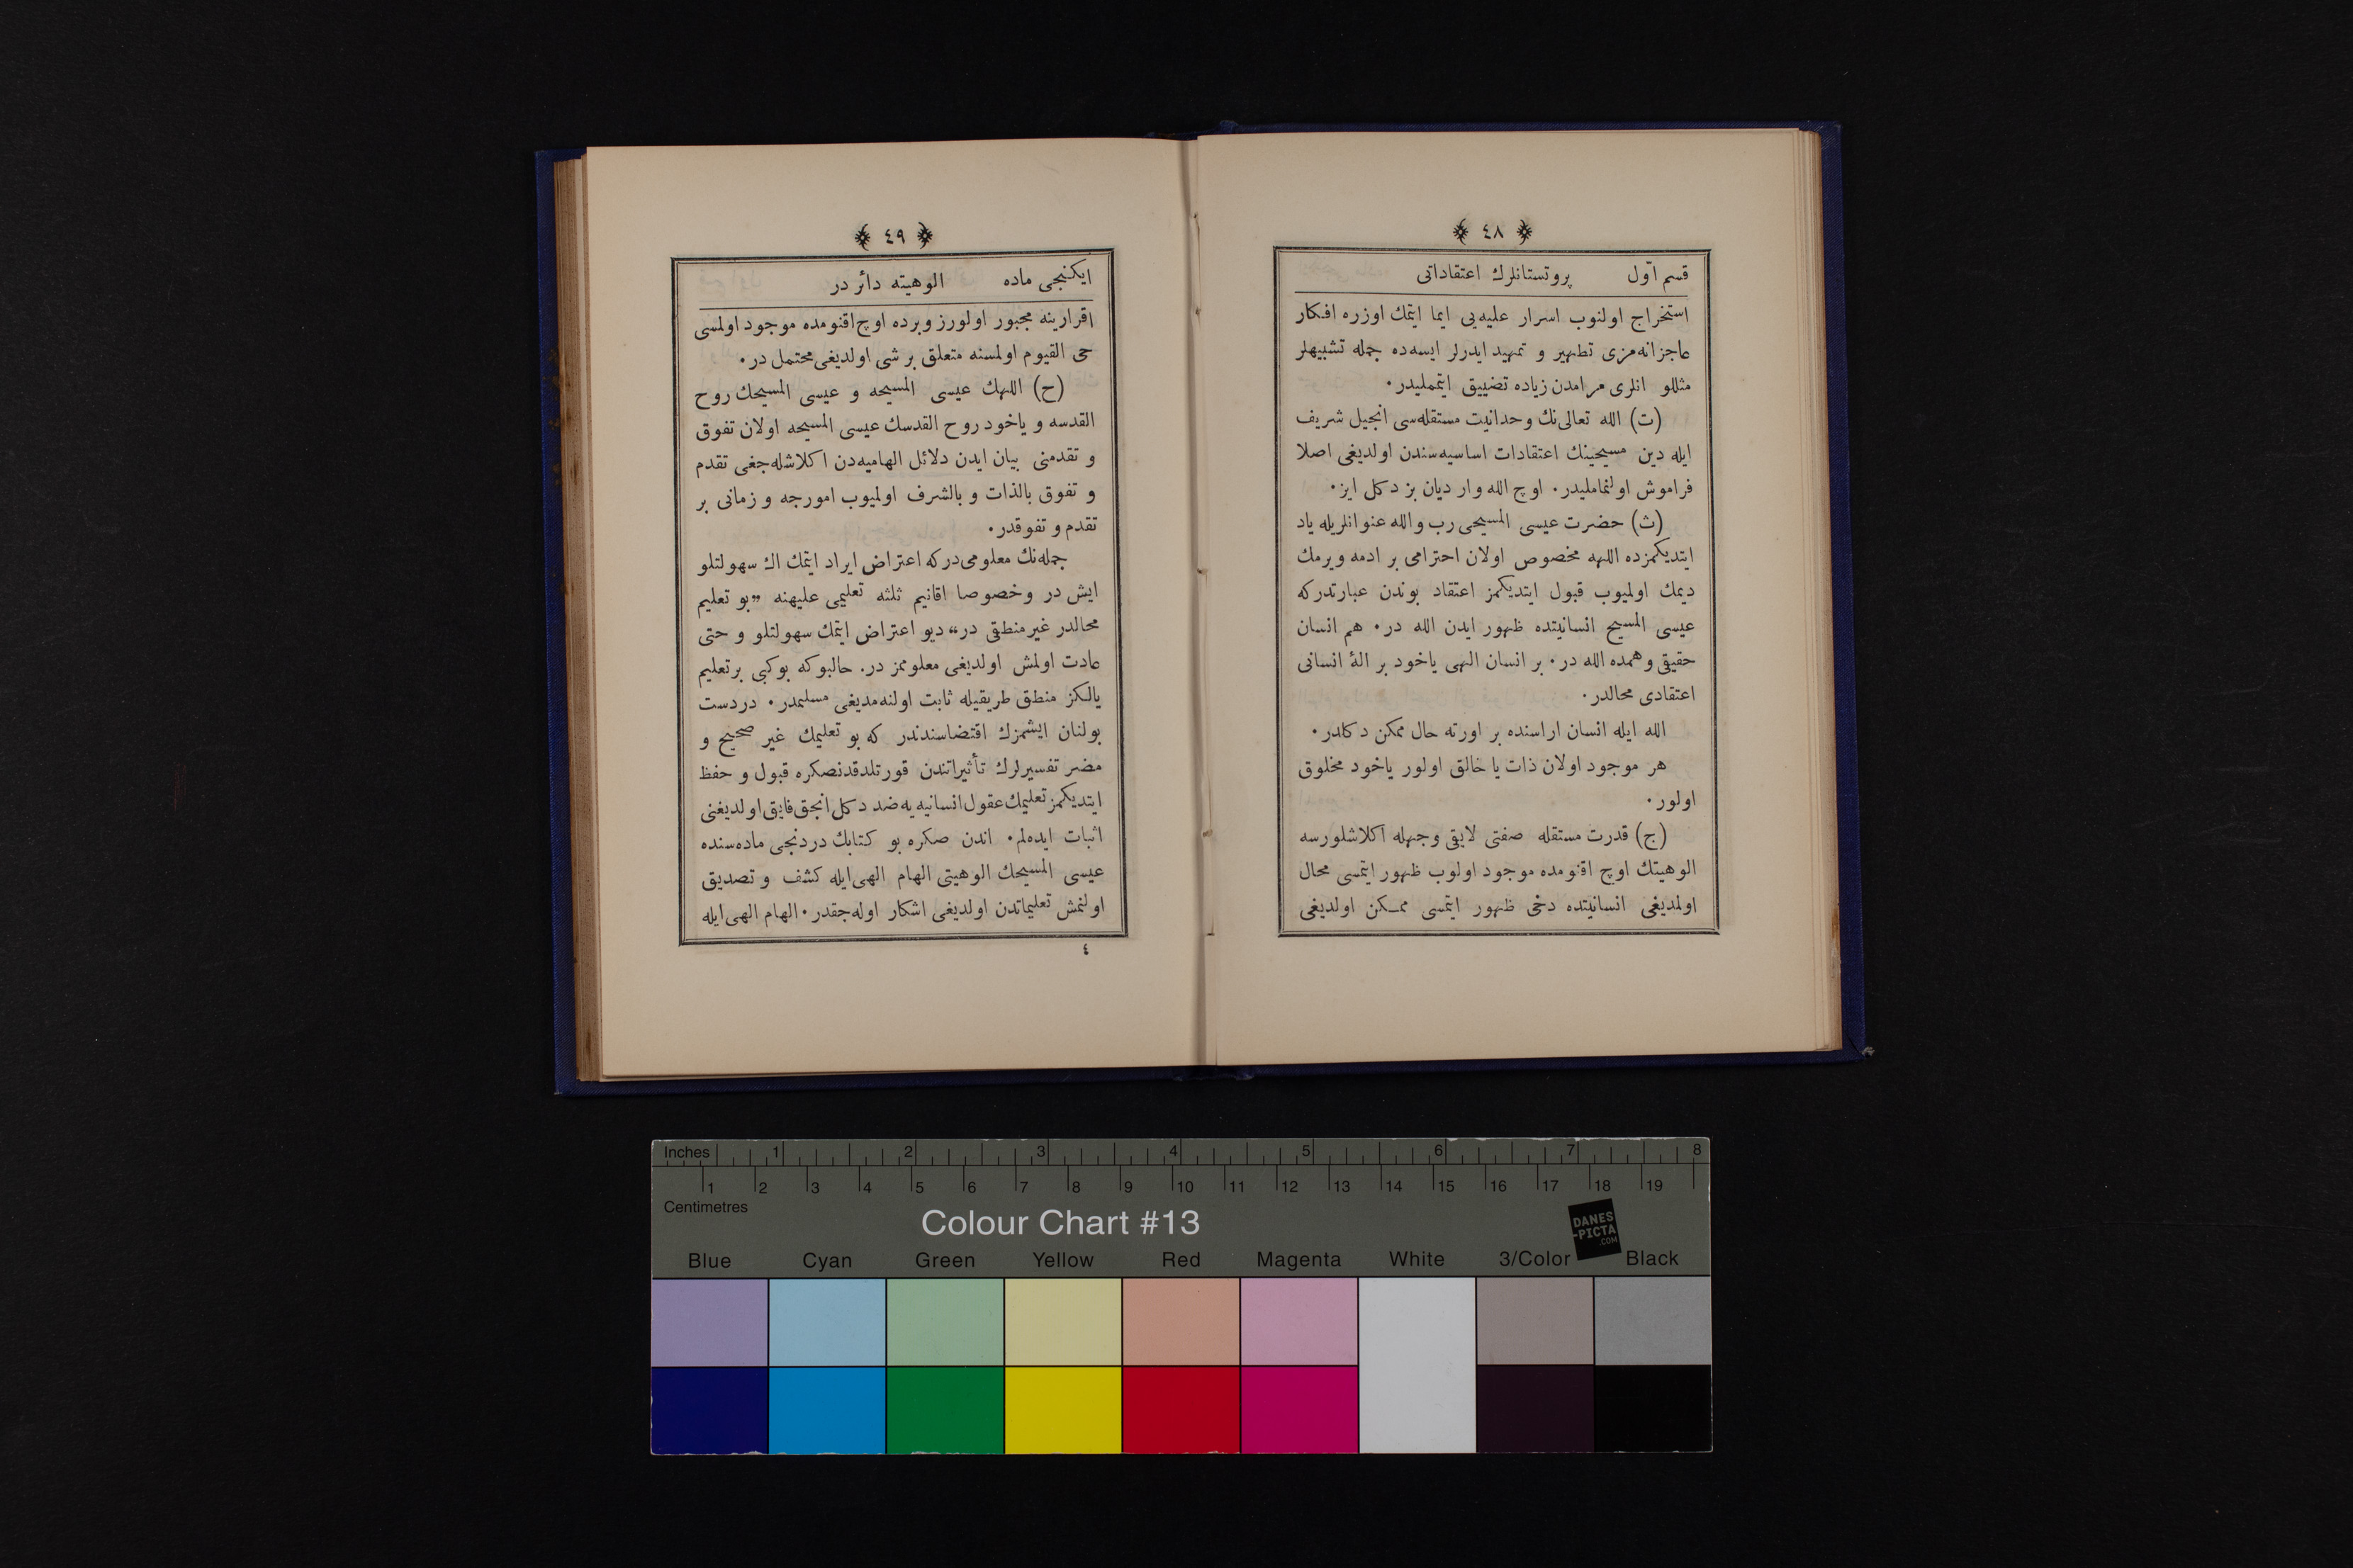 ﴿ ٤٨ ﴾
قسم اوّل پروتستانلرك اعتقاداتى
استخراج اولنوب اسرار عليه‌يى ايما ايتمك اوزره افكار
عاجزانه‌مزى تطهير و تمهيد ايدرلر ايسه‌ده جمله تشبيهلر
مثللو انلرى مرامدن زياده تضييق ايتمليدر٠
(ت) الله تعالى‌نك وحدانيت مستقله‌سى انجيل شريف
ايله دين مسيحينك اعتقادات اساسيه‌سندن اولديغى اصلا
فراموش اولنماملیدر٠ اوچ الله وار ديان بز دكل ايز٠
(ث) حضرت عيسى المسيحى رب والله عنوانلريله ياد
ايتديكمزده اللهه مخصوص اولان احترامى بر ادمه ويرمك
ديمك اولميوب قبول ايتديكمز اعتقاد بوندن عبارتدركه
عيسى المسيح انسانيتده ظهور ايدن الله در٠ هم انسان
حقيقى وهمده الله در٠ بر انسان الهى ياخود بر الهٔ انسانى
اعتقادى محالدر٠
الله ايله انسان اراسنده بر اورته حال ممكن دكلدر٠
هر موجود اولان ذات يا خالق اولور ياخود مخلوق
اولور٠
(ج) قدرت مستقله صفتى لايقى وجهله آكلاشلورسه
الوهيتك اوچ اقنومده موجود اولوب ظهور ايتمسى محال
اولمديغى انسانيتده دخى ظهور ايتمسى ممكن اولديغى
﴿ ٤٩ ﴾
ايكنجى ماده الوهيته دائر در
اقرارينه مجبور اولورز وبرده اوچ اقنومده موجود اولمسى
حى القيوم اولمسنه متعلق بر شى اولديغى محتمل در٠
(ح) اللهك عيسى المسيحه و عيسى المسيحك روح
القدسه و ياخود روح القدسك عيسى المسيحه اولان تفوق
و تقدمنى بيان ايدن دلائل الهاميه‌دن اكلاشله‌جغى تقدم
و تفوق بالذات و بالشرف اولميوب امورجه و زمانى بر
تقدم و تفوقدر٠
جمله‌نك معلومى‌دركه اعتراض ايراد ايتمك اك سهولتلو
ايش در وخصوصا اقانيم ثلثه تعليمى عليهنه ”بو تعليم
محالدر غير منطقى در“ ديو اعتراض ايتمك سهولتلو و حتى
عادت اولمش اولديغى معلومز در. حالبوكه بوكبى برتعليم
يالكز منطق طريقيله ثابت اولنه‌مديغى مسلمدر٠ دردست
بولنان ايشمزك اقتضاسندندر كه بو تعليمك غير صحيح و
مضر تفسيرلرك تأثيراتندن قورتلدقدنصكره قبول و حفظ
ايتديكمز تعليمك عقول انسانيه يه ضد دكل انجق فايق اولديغنى
اثبات ايده‌لم٠ اندن صكره بو كتابك دردنجى ماده‌سنده
عيسى المسيحك الوهيتى الهام الهى‌ايله كشف و تصديق
اولنمش تعليماتدن اولديغى اشكار اوله‌جقدر٠ الهام الهى‌ايله
٤
Inches 1 2 3 4 5 6 7 8
1 2 3 4 5 6 7 8 9 10 11 12 13 14 15 16 17 18 19
Centimetres
Colour Chart #13
DANES
-PICTA
.COM
Blue Cyan Green Yellow Red Magenta White 3/Color Black